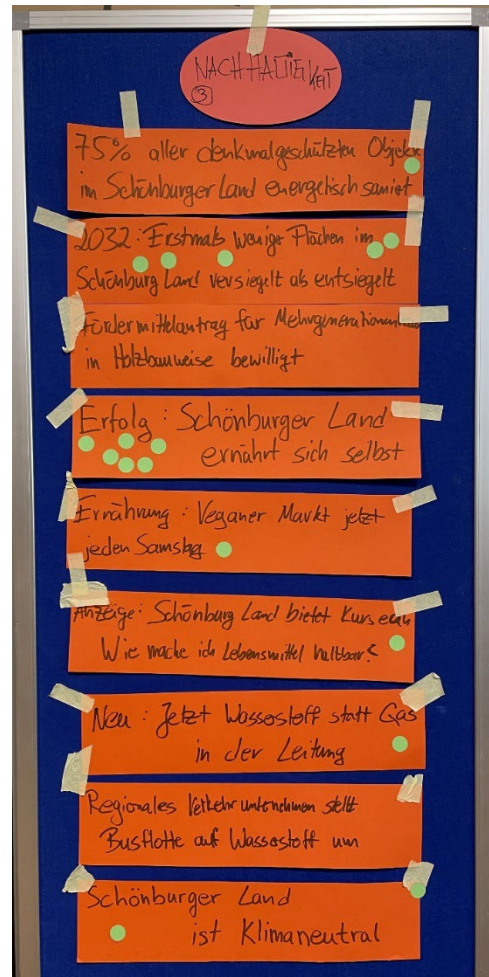 NACHHALTIGKEIT
3
75% aller denkmalgeschützten Objekte
im Schönburger Land energetisch saniert
2032: Erstmals wenige Flächen im
Schönburg Land versiegelt als entsiegelt
Fördermittelantrag für
in Holzbauweise bewilligt
Erfolg: Schönburger Land
ernährt sich selbst
Ernährung: Veganer Markt jetzt
jeden Samstag
Anzeige: Schönburg Land bietet Kurse
Wie mache ich Lebensmittel haltbar?
Neu: Jetzt Wasserstoff statt Gas
in der Leitung
Regionales Verkehrsunternehmen stellt
Busflotte auf Wasserstoff um
Schönburger Land
ist Klimaneutral